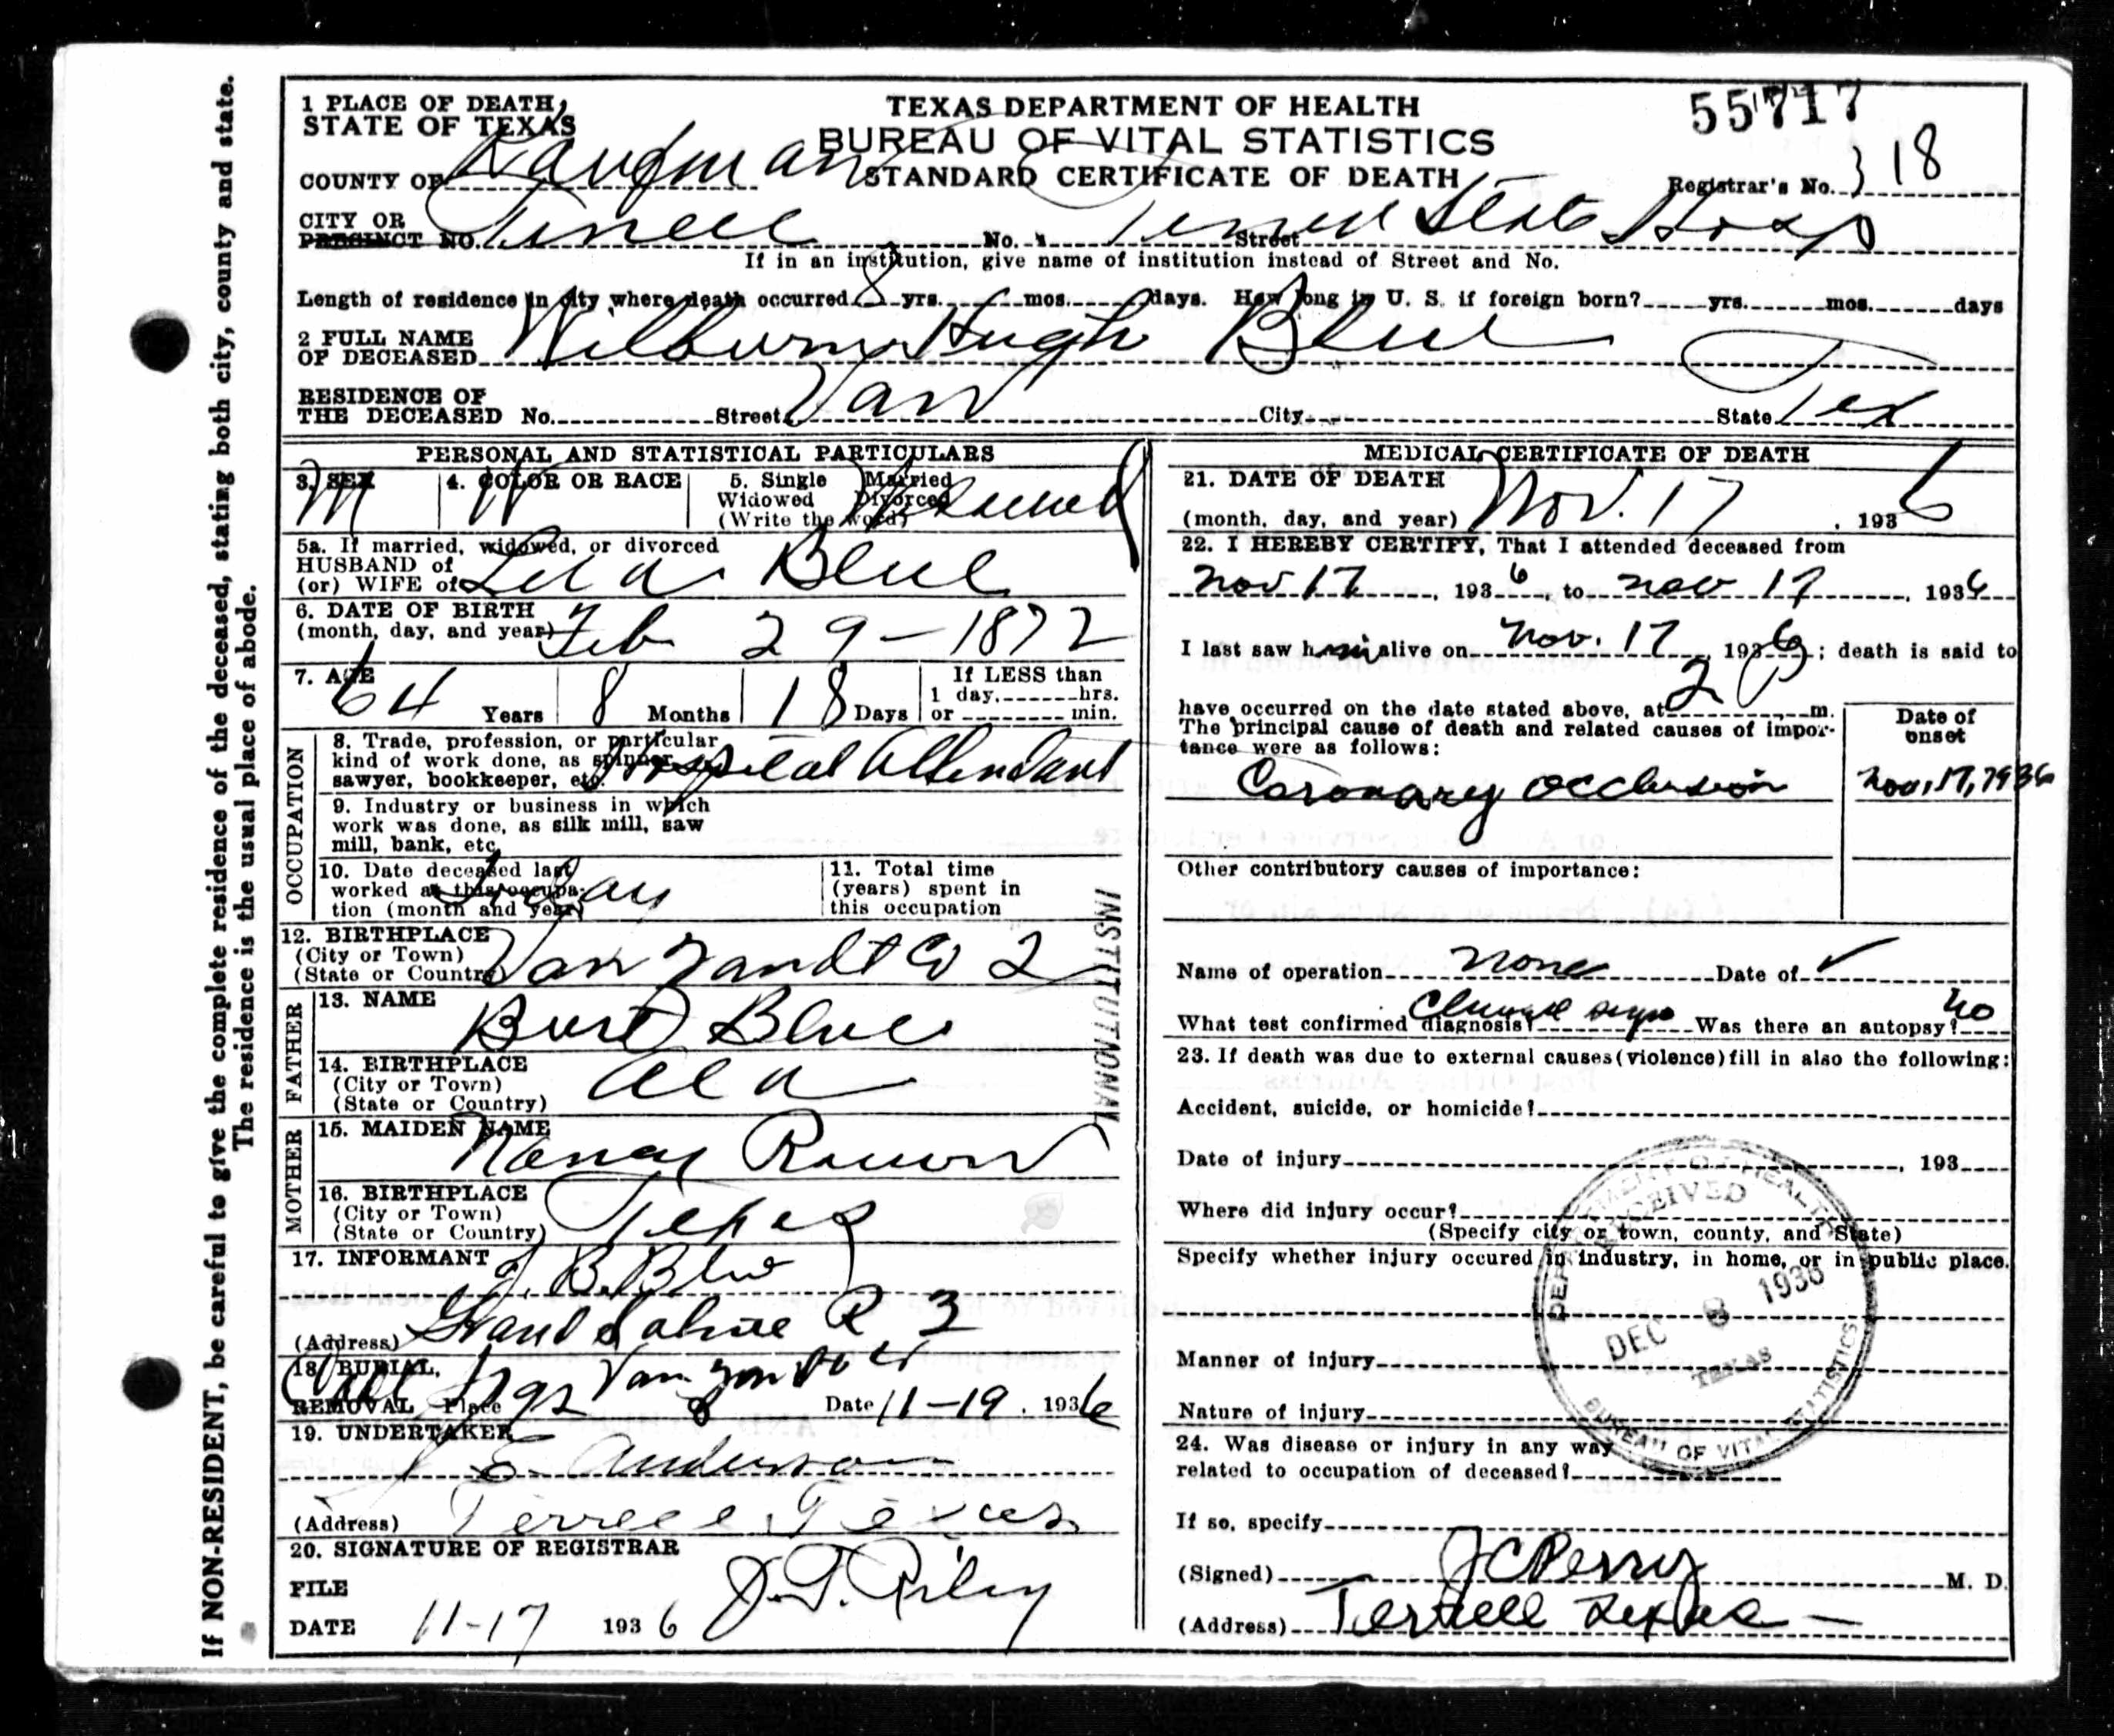 If NON-RESIDENT, be careful to give the complete residence of the deceased, stating both city, county and state.
The residence is the usual place of abode.
1 PLACE OF DEATH, TEXAS DEPARTMENT OF HEALTH 55717
STATE OF TEXAS BUREAU OF VITAL STATISTICS
COUNTY OF Kaufman STANDARD CERTIFICATE OF DEATH Registrar's No. 318
CITY OR
PRECINCT NO. Terrell No. Terrell State Hosp Street
If in an institution, give name of institution instead of Street and No.
Length of residence in city where death occurred 8 yrs. mos. days. How long in U. S. if foreign born? yrs. mos. days
2 FULL NAME
OF DECEASED Wilburn Hugh Blue
RESIDENCE OF
THE DECEASED No. Street Van City State Tex
PERSONAL AND STATISTICAL PARTICULARS
3. SEX M 4. COLOR OR RACE W 5. Single Married
Widowed Divorced
(Write the word) Widowed
5a. If married, widowed, or divorced
HUSBAND of
(or) WIFE of Blue
6. DATE OF BIRTH
(month, day, and year) Feb 29-1872
7. AGE 64 Years 8 Months 18 Days If LESS than
1 day, hrs.
or min.
OCCUPATION
8. Trade, profession, or particular
kind of work done, as spinner,
sawyer, bookkeeper, etc. Hospital Attendant
9. Industry or business in which
work was done, as silk mill, saw
mill, bank, etc.
10. Date deceased last
worked at this occupa-
tion (month and year) today
11. Total time
(years) spent in
this occupation
12. BIRTHPLACE
(City or Town)
(State or Country) Van Zandt Co
INSTITUTIONAL
FATHER
13. NAME Burt Blue
14. BIRTHPLACE
(City or Town)
(State or Country) Ala
MOTHER
15. MAIDEN NAME Nancy
16. BIRTHPLACE
(City or Town)
(State or Country) Texas
17. INFORMANT J. B. Blue
(Address) Grand Saline R 3
18. BURIAL, Van Zandt Co
REMOVAL Place Date 11-19, 1936
19. UNDERTAKER
E. Anderson
(Address) Terrell Texas
20. SIGNATURE OF REGISTRAR
FILE
DATE 11-17 1936 J. T. Riley
MEDICAL CERTIFICATE OF DEATH
21. DATE OF DEATH
(month, day, and year) Nov. 17, 1936
22. I HEREBY CERTIFY, That I attended deceased from
Nov 17, 1936, to Nov 17, 1936
I last saw him alive on Nov. 17 1936; death is said to
have occurred on the date stated above, at 2 P m.
The principal cause of death and related causes of impor-
tance were as follows:
Date of
onset
Coronary occlusion Nov, 17, 1936
Other contributory causes of importance:
Name of operation None Date of ✓
What test confirmed diagnosis? Clinical signs Was there an autopsy? no
23. If death was due to external causes (violence) fill in also the following:
Accident, suicide, or homicide?
Date of injury , 193
Where did injury occur?
(Specify city or town, county, and State)
Specify whether injury occured in industry, in home, or in public place.
Manner of injury
Nature of injury
DEPARTMENT OF HEALTH
RECEIVED
DEC 8 1936
TEXAS
BUREAU OF VITAL STATISTICS
24. Was disease or injury in any way
related to occupation of deceased?
If so, specify
(Signed) J C Perry M. D.
(Address) Terrell Texas